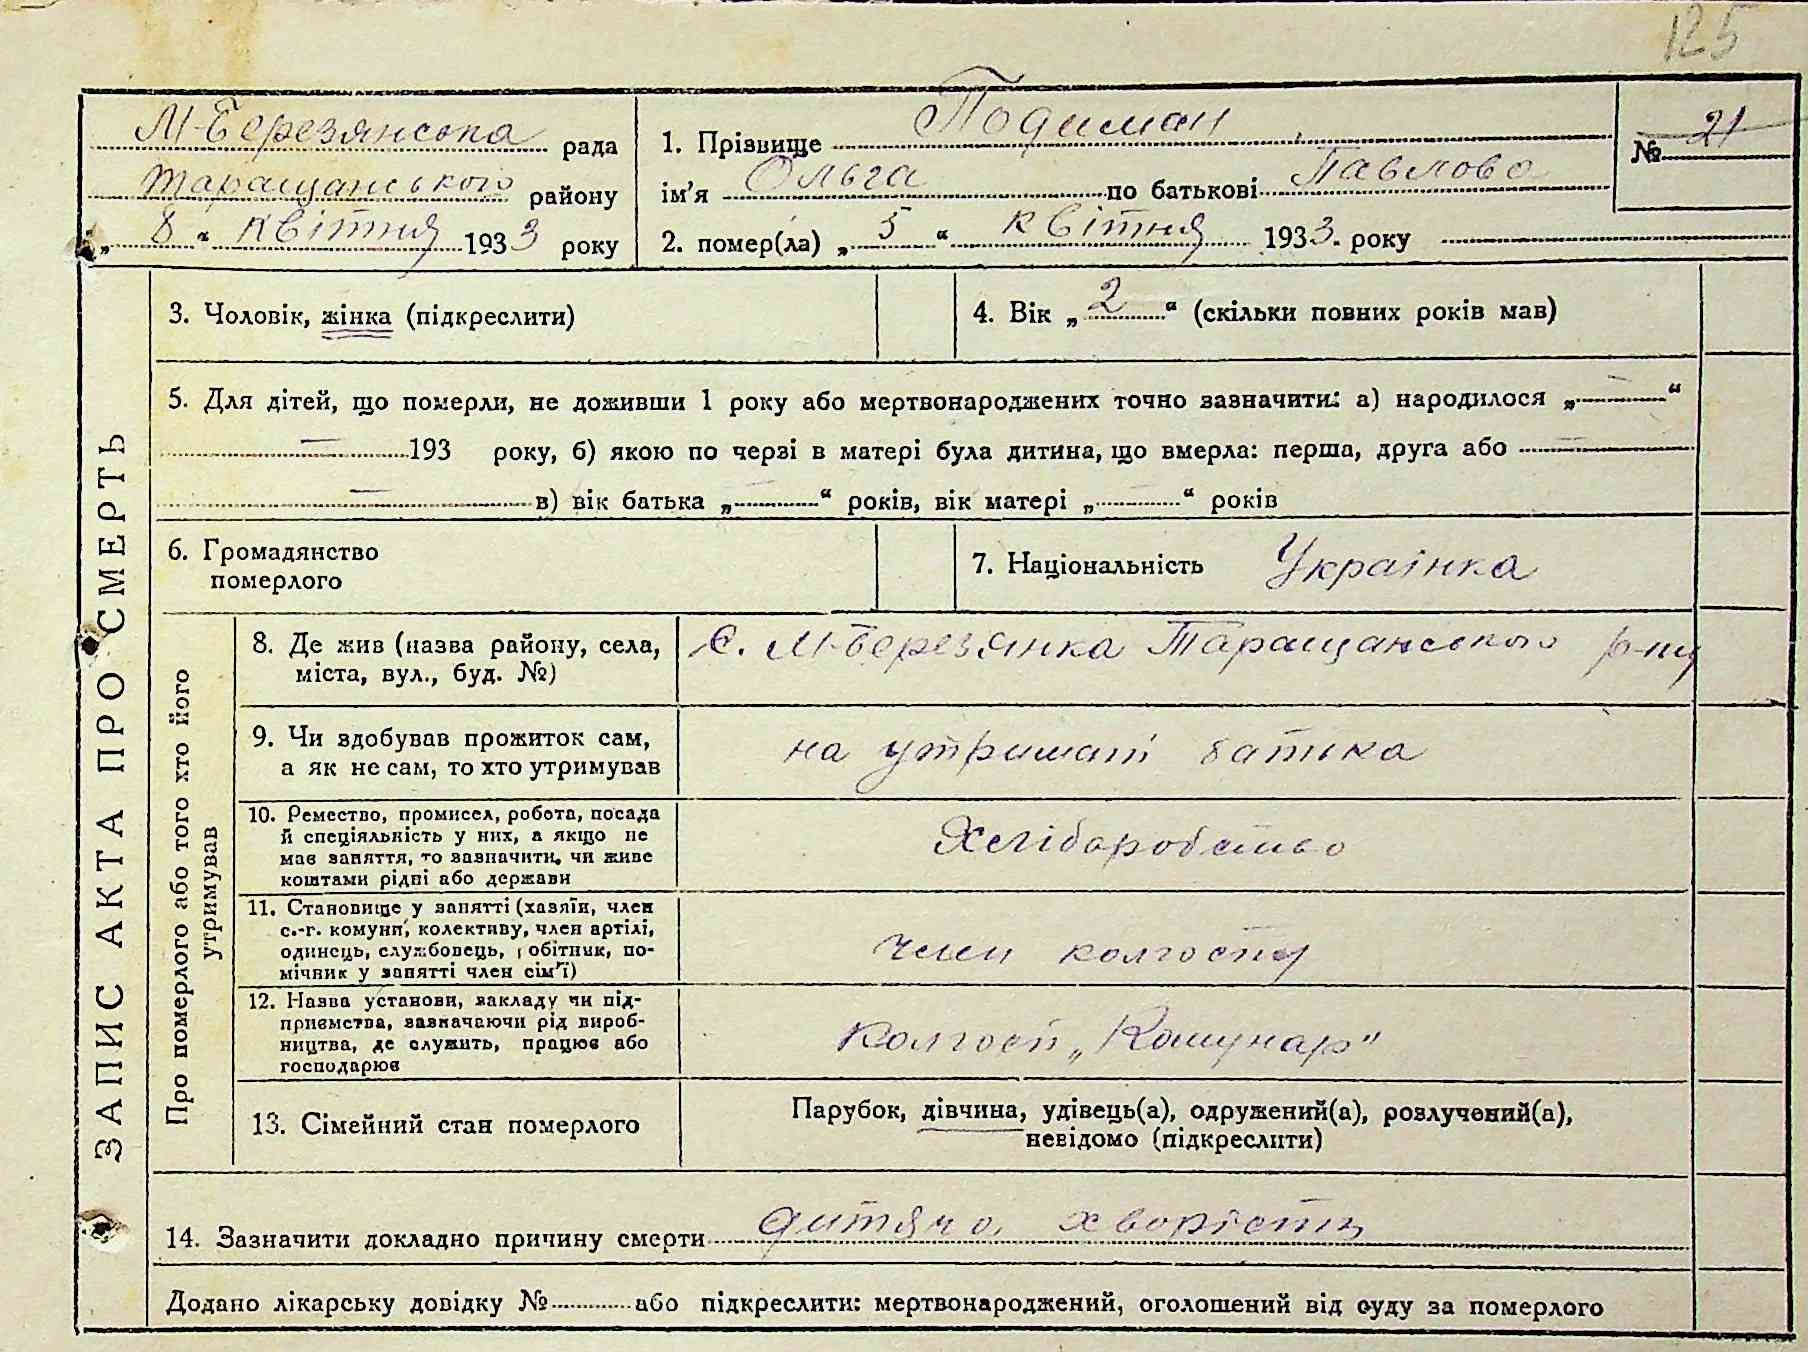 125
М-Березянська рада
Таращанського району
„ 8 “ квітня 1933 року
1. Прізвище Подиман
ім’я Ольга по батькові Павлова
2. помер(ла) „ 5 “ квітня 1933. року
№ 21
ЗАПИС АКТА ПРО СМЕРТЬ
3. Чоловік, жінка (підкреслити)
4. Вік „ 2 “ (скільки повних років мав)
5. Для дітей, що померли, не доживши 1 року або мертвонароджених точно зазначити: а) народилося „ — “
— 193 року, б) якою по черзі в матері була дитина, що вмерла: перша, друга або —
— в) вік батька „ — “ років, вік матері „ — “ років
6. Громадянство
померлого
7. Національність Українка
Про померлого або того хто його
утримував
8. Де жив (назва району, села,
міста, вул., буд. №)
с. М-Березянка Таращанського р-ну
9. Чи здобував прожиток сам,
а як не сам, то хто утримував
на утримані батька
10. Ремество, промисел, робота, посада
й спеціяльність у них, а якщо не
має заняття, то зазначити, чи живе
коштами рідні або держави
Хліборобство
11. Становище у занятті (хазяїн, член
с.-г. комуни, колективу, член артілі,
одинець, службовець, обітник, по-
мічник у занятті член сім’ї)
член колгоспу
12. Назва установи, закладу чи під-
приємства, зазначаючи рід вироб-
ництва, де служить, працює або
господарює
Колгосп „Комунар"
13. Сімейний стан померлого
Парубок, дівчина, удівець(а), одружений(а), розлучений(а),
невідомо (підкреслити)
14. Зазначити докладно причину смерти дитяча хворість
Додано лікарську довідку № або підкреслити: мертвонароджений, оголошений від суду за померлого